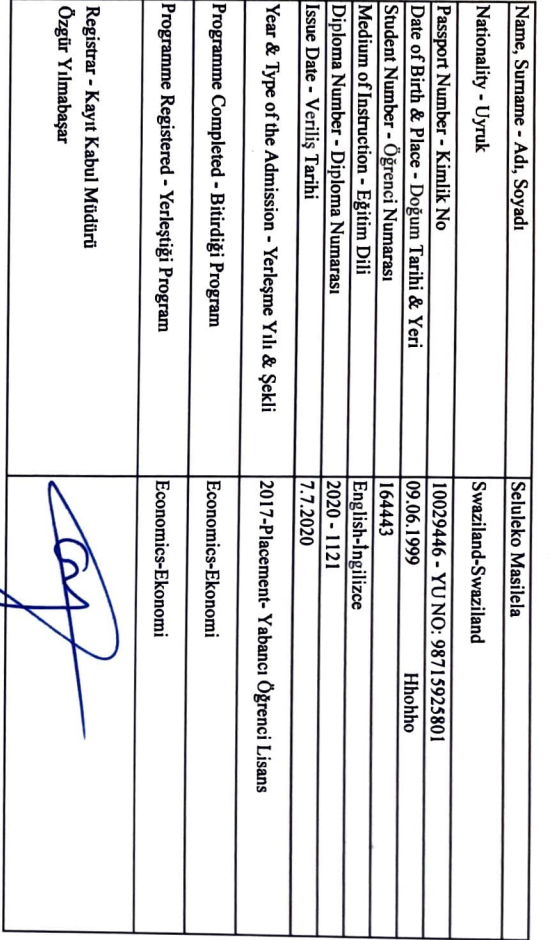 Name, Surname - Adı, Soyadı Seluleko Masilela
Nationality - Uyruk Swaziland-Swaziland
Passport Number - Kimlik No 10029446 - YU NO: 98715925801
Date of Birth & Place - Doğum Tarihi & Yeri 09.06.1999 Hhohho
Student Number - Öğrenci Numarası 164443
Medium of Instruction - Eğitim Dili English-İngilizce
Diploma Number - Diploma Numarası 2020 - 1121
Issue Date - Veriliş Tarihi 7.7.2020
Year & Type of the Admission - Yerleşme Yılı & Şekli 2017-Placement- Yabancı Öğrenci Lisans
Programme Completed - Bitirdiği Program Economics-Ekonomi
Programme Registered - Yerleştiği Program Economics-Ekonomi
Registrar - Kayıt Kabul Müdürü
Özgür Yılmabaşar